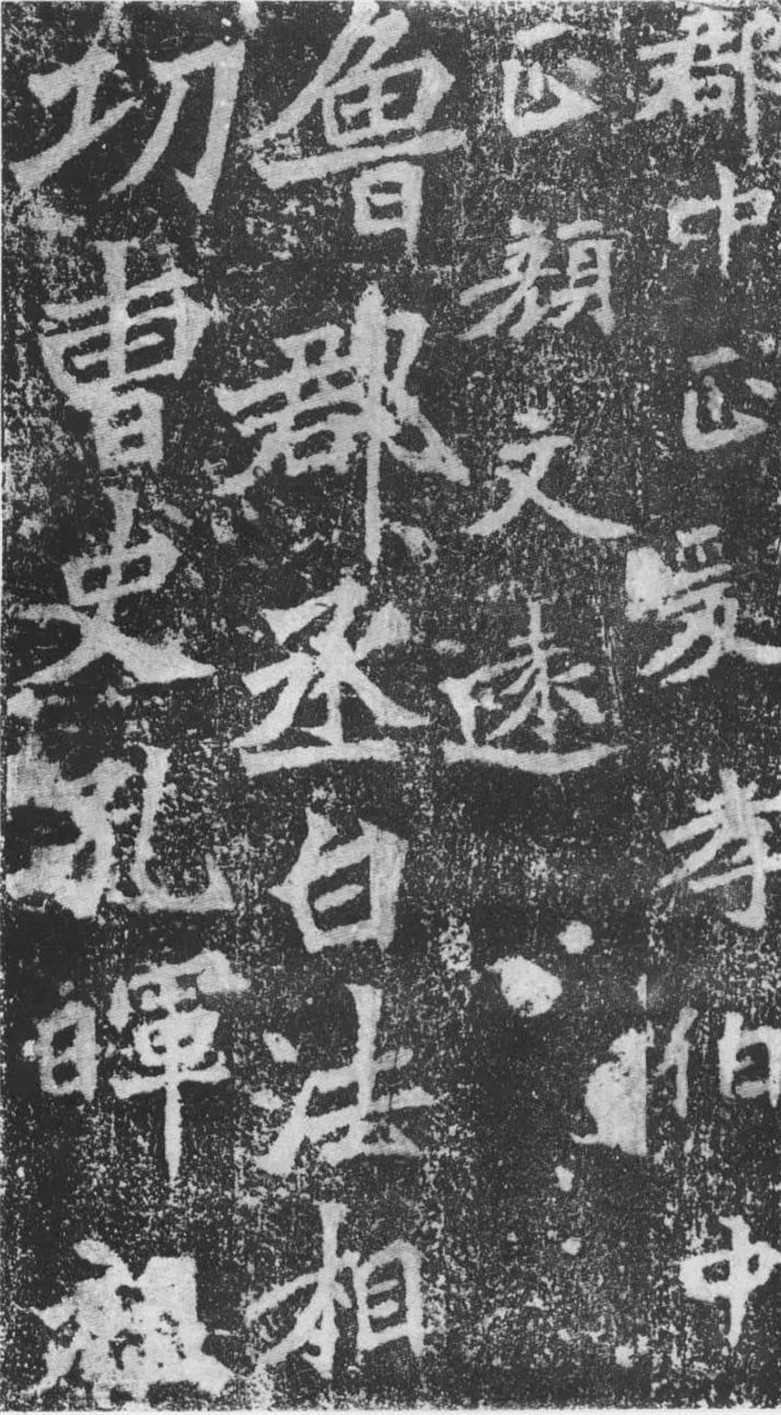 郡中正爰孝伯中
正顏文遠
魯郡丞白法相
功曹史孔暉祖